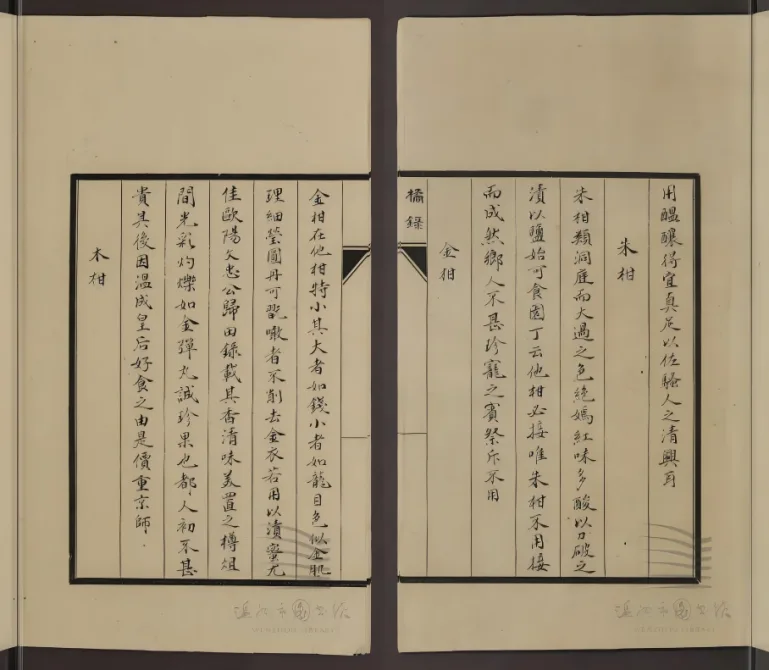 用醞釀得宜真足以佐騷人之清興耳
朱柑
朱柑類洞庭而大過之色絶嫣紅味多酸以刀破之
漬以鹽始可食園丁云他柑必接唯朱柑不用接
而成然鄉人不甚珍寵之賓祭斥不用
金柑
橘錄
金柑在他柑特小其大者如錢小者如龍目色似金肌
理細瑩圓丹可翫噉者不削去金衣若用以漬蜜尤
佳歐陽文忠公歸田錄載其香清味美置之樽俎
間光彩灼爍如金彈丸誠珍果也都人初不甚
貴其後因溫成皇后好食之由是價重京師
木柑